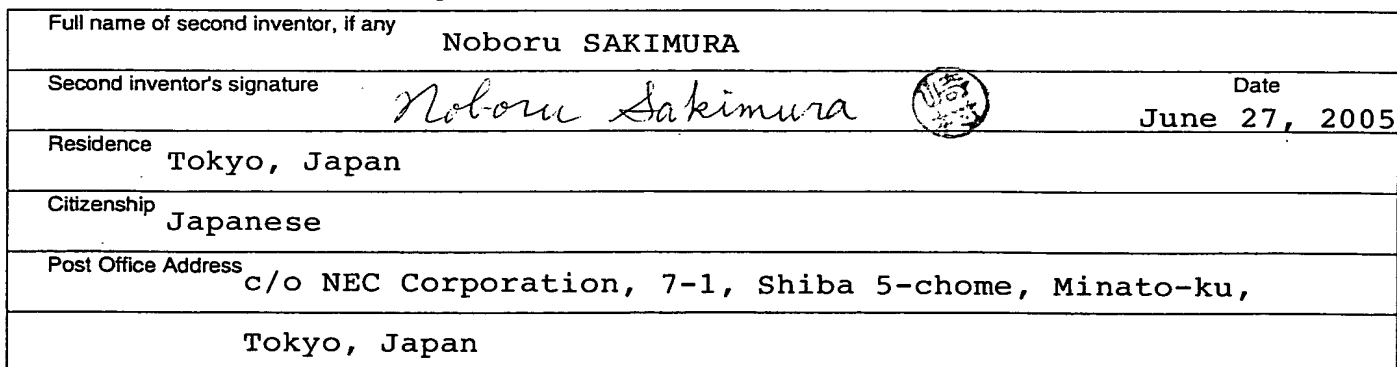 Full name of second inventor, if any Noboru SAKIMURA
Second inventor's signature Noboru Sakimura 崎村 Date
June 27, 2005
Residence Tokyo, Japan
Citizenship Japanese
Post Office Address c/o NEC Corporation, 7-1, Shiba 5-chome, Minato-ku,
Tokyo, Japan